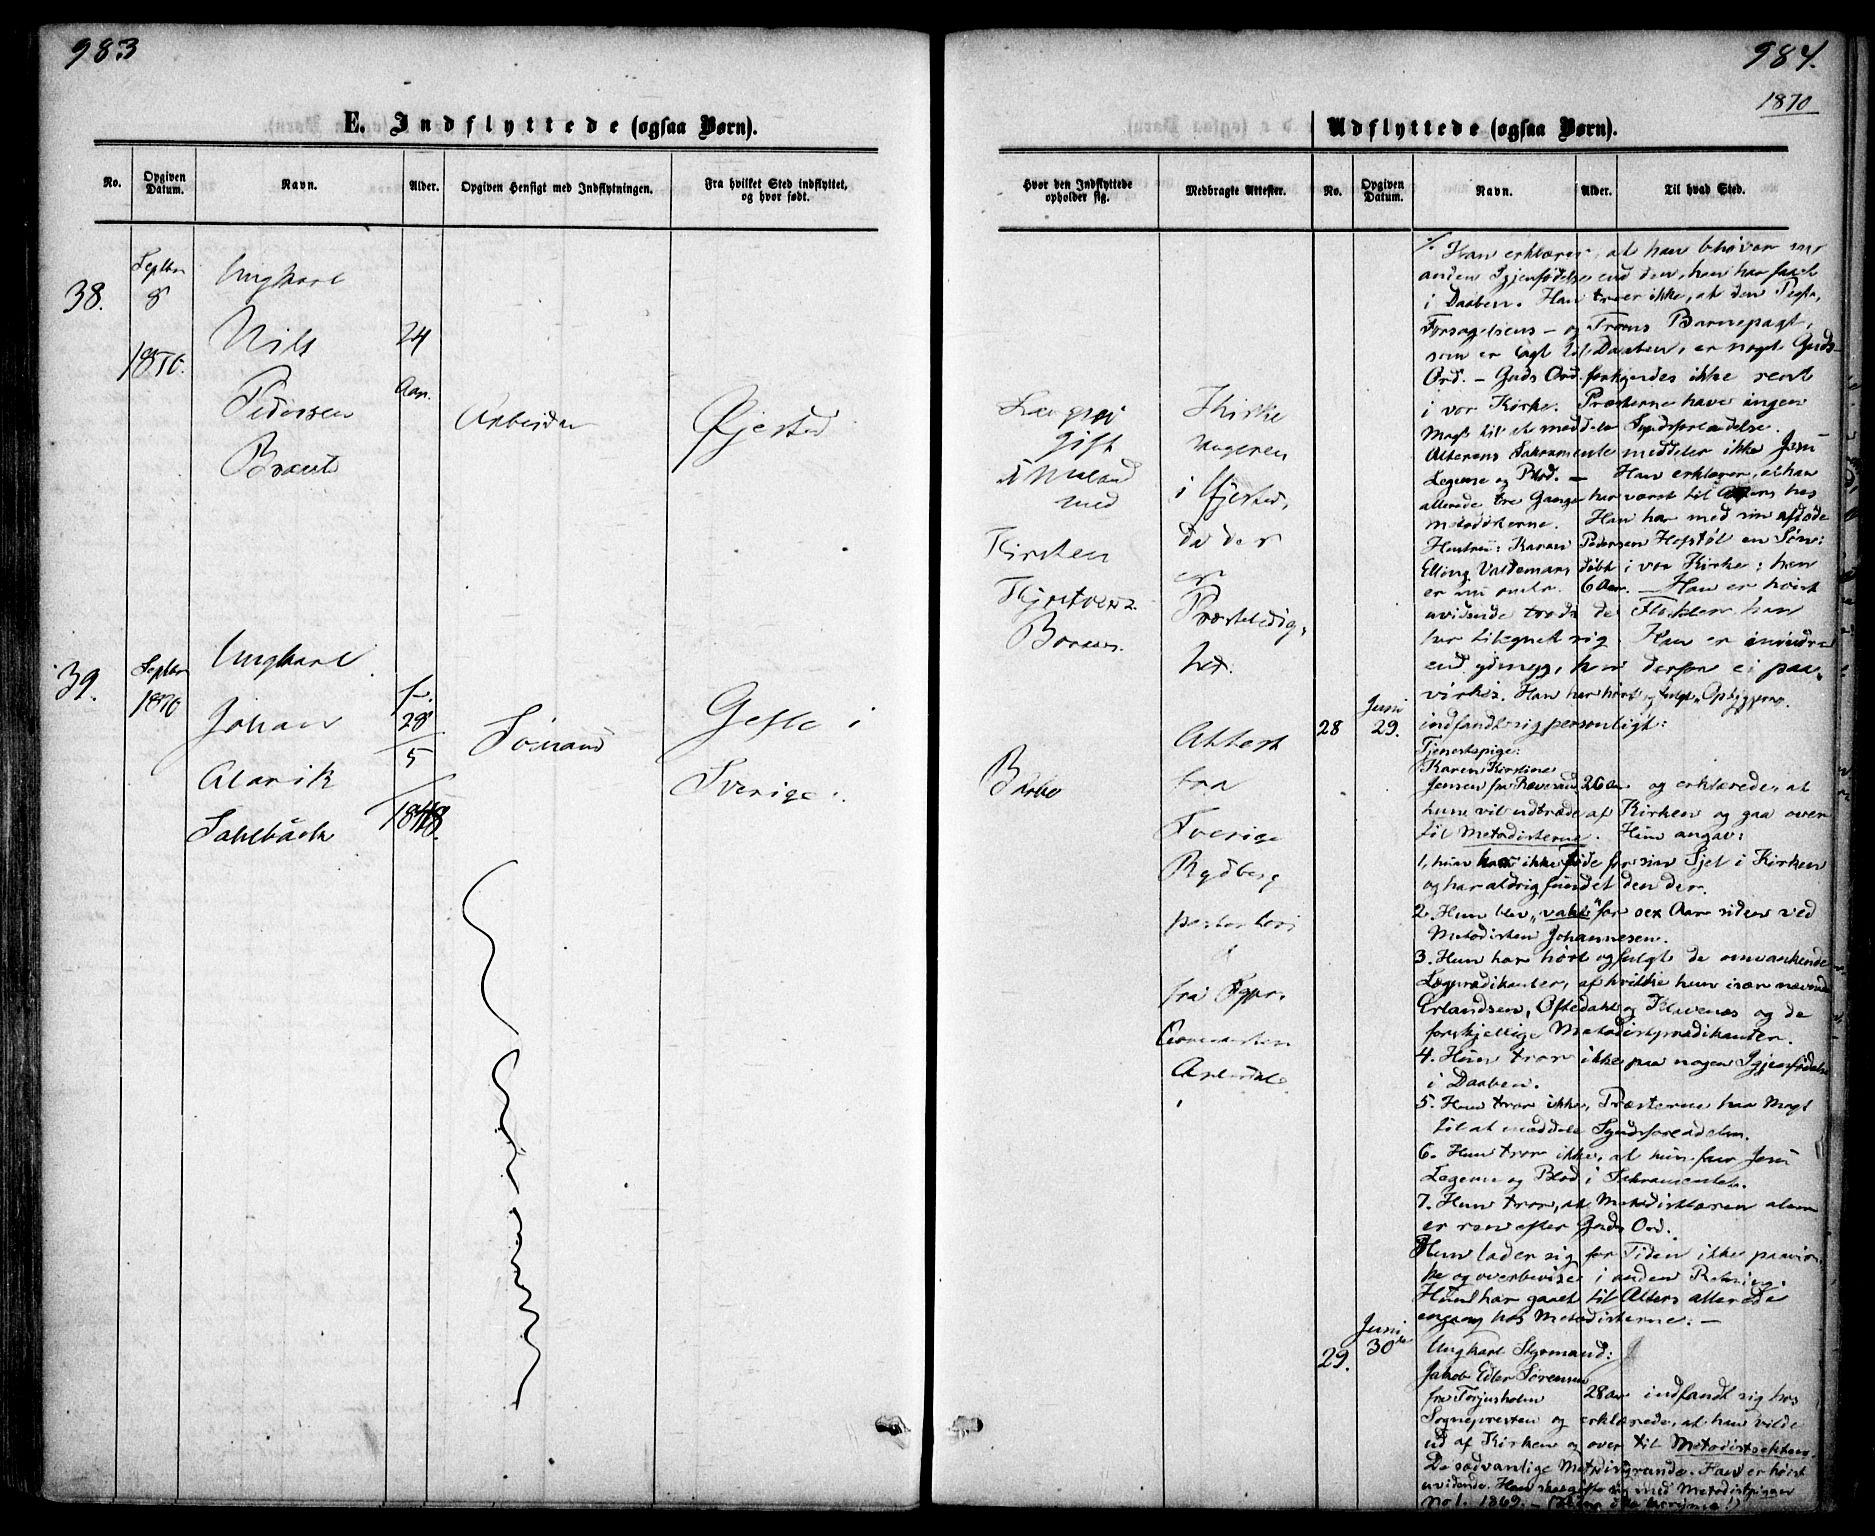 983
E. Indflyttede (ogsaa Børn).
No.
Opgiven Datum.
Navn.
Alder.
Opgiven Hensigt med Indflytningen.
Fra hvilket Sted indflyttet, og hvor født.
38.
Septbr
8
1870.
Ungkarl
Nils
Pedersen
24
Aar.
Arbeider
Øjestad
39.
Septbr
1870
Ungkarl
Johan
Alarik
Sahlbäck
28/5
Sömand
Gefle i
Sverige.
984.
1870
Udflyttede (ogsaa Børn).
Hvor den Indflyttede opholder sig.
Medbragte Attester.
No.
Opgiven Datum.
Navn.
Alder.
Til hvad Sted.
gift
med
Kirsten
i Øjestad,
da der
er
Præsteledig-
hed.
Barbo
Attest
fra
Sverige
Rydberg
fra
%. Han erklærer, at han behøver ingen
anden Igjenfødelse end den, han har faaet
i Daaben. Han troer ikke, at den Pagt,
Forsagelsens – og Troens Barnepagt,
som er lagt til Daaben, er nogt Guds-
Ord. – Guds Ord forkyndes ikke rent
i vor Kirke. Præsterne have ingen
Magt til at meddele Syndsforladelse.
Alterens Sakramente meddeler ikke Jesu
Legeme og Blod. – Han erklærer, at han
allerede tre Gange har været til Alters hos
Metodisterne. Han har med sin afdøde
Hustru: Karen Pedersen Hofstøl en Søn:
Elling Valdemar døbt i vor Kirke: han
er nu omtr. 6 Aar. – Han er höist
uvidende trods de Flokler han
har tilegnet sig. Han er mindre
end ydmyg, kan derfor ei paa-
virkes. Han har hört og fulgt
28
Juni
29.
indfandt sig personligt:
Tjenestepige:
Karen Kirstine
Jensen fra Rævesand 26 Aar og erklærede, at
hun vil udtræde af Kirken og gaa over
til Metodisterne. Hun angav:
1, hun har ikke føde for sin Sjel i Kirken
og har aldrig fundet den der.
2. Hun blev „vakt“ for sex Aar siden ved
Metodisten Johannesen.
3. Hun har hört og fulgt de omvankende
Lægprædikanter, af hvilke hun især nævnte
Erlandsen, Oftedahl og Klavenæs og de
forskjellige Metodistprædikanter.
4. Hun tror ikke paa nogen Igjenfødelse
i Daaben.
5. Hun tror ikke, Præsterne har Magt
til at meddele Syndsforladelse.
6. Hun tror ikke, at hun faar Jesu
Legeme og Blod i Sakramentet.
7. Hun tror, at Metodistlæren alene
er ren efter Guds Ord.
Hun lader sig for Tiden ikke paavir-
ke og overbevise i anden Retning.
Hun har gaaet til Alters allerede
engang hos Metodisterne. –
29.
Juni
30te
Ungkarl Styrmand:
Jakob Edler Sörensen
fra Torjusholm 28 Aar indfandt sig hos
Sognepresten og erklærede, at han vilde
ud af Kirken og over til Metodistsekten.
De sædvanlige Metodistgrunde. Han er höist
uvidende. Han skal gifte sig med Metodistpigen
No 1. 1869. –